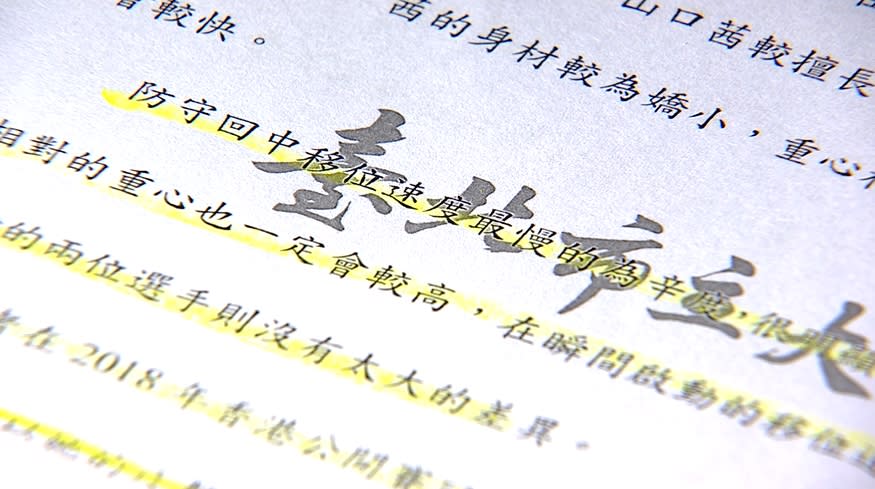 山口茜較擅長
茜的身材較為嬌小，重心
會較快。
防守回中移位速度最慢的為辛度，很明顯
相對的重心也一定會較高，在瞬間啟動的移位速
的兩位選手則沒有太大的差異。
在2018年香港公開賽
臺北市立大